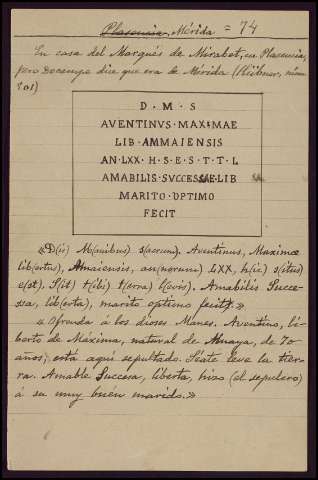 Plasencia, Mérida = 74
En casa del Marqués de Mirabel, en Plasencia,
pero Docampo dice que era de Mérida (Hübner, núm.
501)
D · M · S
AVENTINVS · MAXIMAE
LIB · AMMAIENSIS
AN · LXX · H · S · E · S · T · T · L
AMABILIS · SVCCESSAE · LIB
MARITO · OPTIMO
FECIT
«D(is) M(anibus) s(acrum). Aventinus, Maximæ
lib(ertus), Amaiensis, an(norum) LXX, h(ic) s(itus)
e(st). S(it) t(ibi) t(erra) l(evis). Amabilis Succe-
ssa, lib(erta), marito optimo fecit.»
«Ofrenda á los dioses Manes. Aventino, li-
berto de Máxima, natural de Amaya, de 70
años, está aquí sepultado. Séate leve la tier-
ra. Amable Succesa, liberta, hizo (el sepulcro)
á su muy buén marido.»